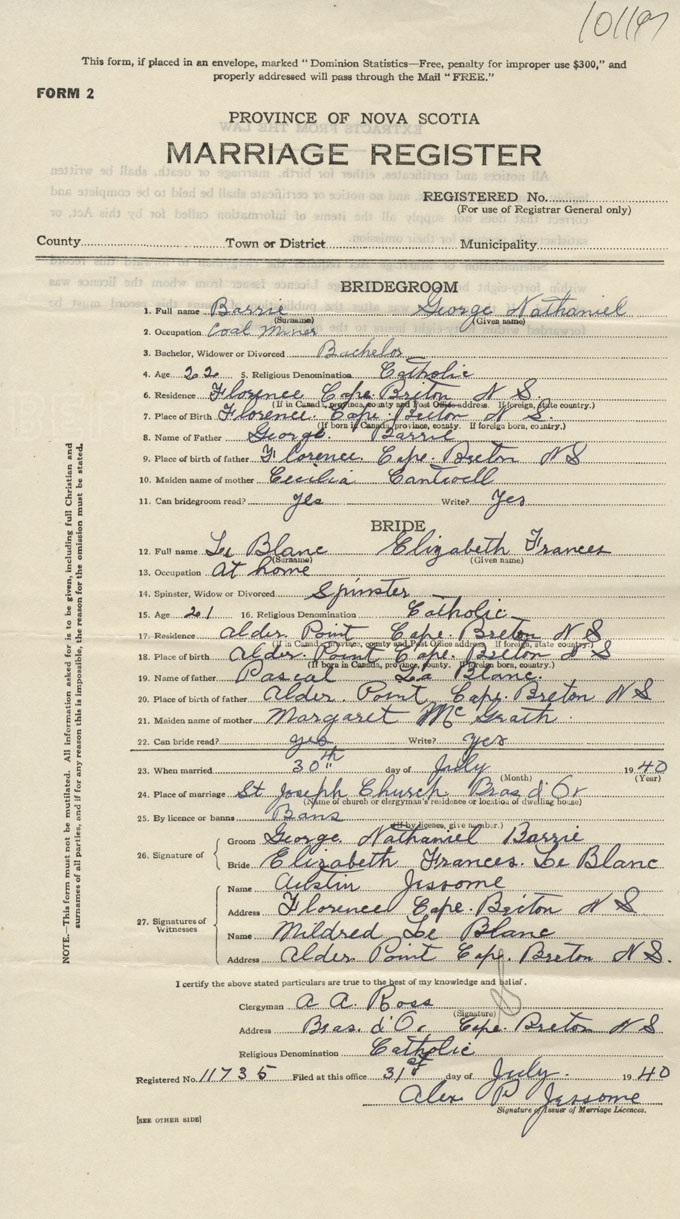 This form, if placed in an envelope, marked "Dominion Statistics—Free, penalty for improper use $300," and
properly addressed will pass through the Mail "FREE."
FORM 2
PROVINCE OF NOVA SCOTIA
MARRIAGE REGISTER
REGISTERED No.
(For use of Registrar General only)
County Town or District Municipality
BRIDEGROOM
1. Full name Barrie George Nathaniel
(Surname) (Given name)
2. Occupation Coal Miner
3. Bachelor, Widower or Divorced Bachelor
4. Age 22 5. Religious Denomination Catholic
6. Residence Florence Cape Breton N S
(If in Canada, province, county and Post Office address. If foreign, state country.)
7. Place of Birth Florence Cape Breton N S
(If born in Canada, province, county. If foreign born, country.)
8. Name of Father George Barrie
9. Place of birth of father Florence Cape Breton N S
10. Maiden name of mother Cecilia Cantwell
11. Can bridegroom read? yes Write? Yes
BRIDE
12. Full name Le Blanc Elizabeth Frances
(Surname) (Given name)
13. Occupation at home
14. Spinster, Widow or Divorced Spinster
15. Age 21 16. Religious Denomination Catholic
17. Residence Alder Point Cape Breton N S
(If in Canada, Province, county and Post Office address. If foreign, state country.)
18. Place of birth Alder Point Cape Breton N S
(If born in Canada, province, county. If foreign born, country.)
19. Name of father Pascal Le Blanc
20. Place of birth of father Alder Point Cape Breton N S
21. Maiden name of mother Margaret McGrath
22. Can bride read? yes Write? yes
23. When married 30th day of July 1940
(Month) (Year)
24. Place of marriage St Joseph Church Bras d'Or
(Name of church or clergyman's residence or location of dwelling house)
25. By licence or banns Bans
(If by licence, give number.)
26. Signature of
Groom George Nathaniel Barrie
Bride Elizabeth Frances Le Blanc
27. Signatures of Witnesses
Name Austin Jessome
Address Florence Cape Breton N S
Name Mildred Le Blanc
Address Alder Point Cape Breton N S.
I certify the above stated particulars are true to the best of my knowledge and belief.
Clergyman A A. Ross
(Signature)
Address Bras d'Or Cape Breton N S
Religious Denomination Catholic
Registered No. 11735 Filed at this office 31st day of July 1940
Alex P Jessome
Signature of Issuer of Marriage Licences.
[SEE OTHER SIDE]
NOTE.—This form must not be mutilated. All information asked for is to be given, including full Christian and
surnames of all parties, and if for any reason this is impossible, the reason for the omission must be stated.